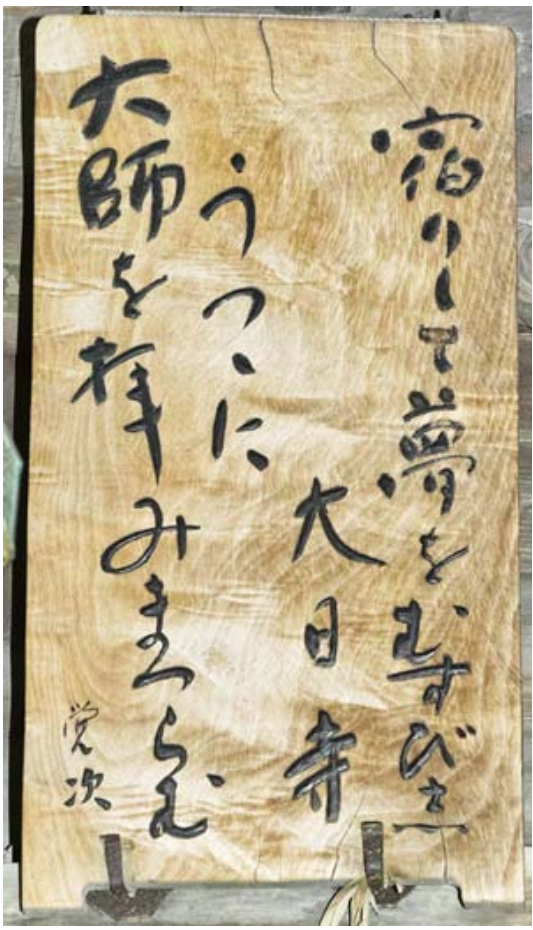 宿りして夢をむすび志
大日寺
うつゝに
大師を拝みまつらむ
覚次